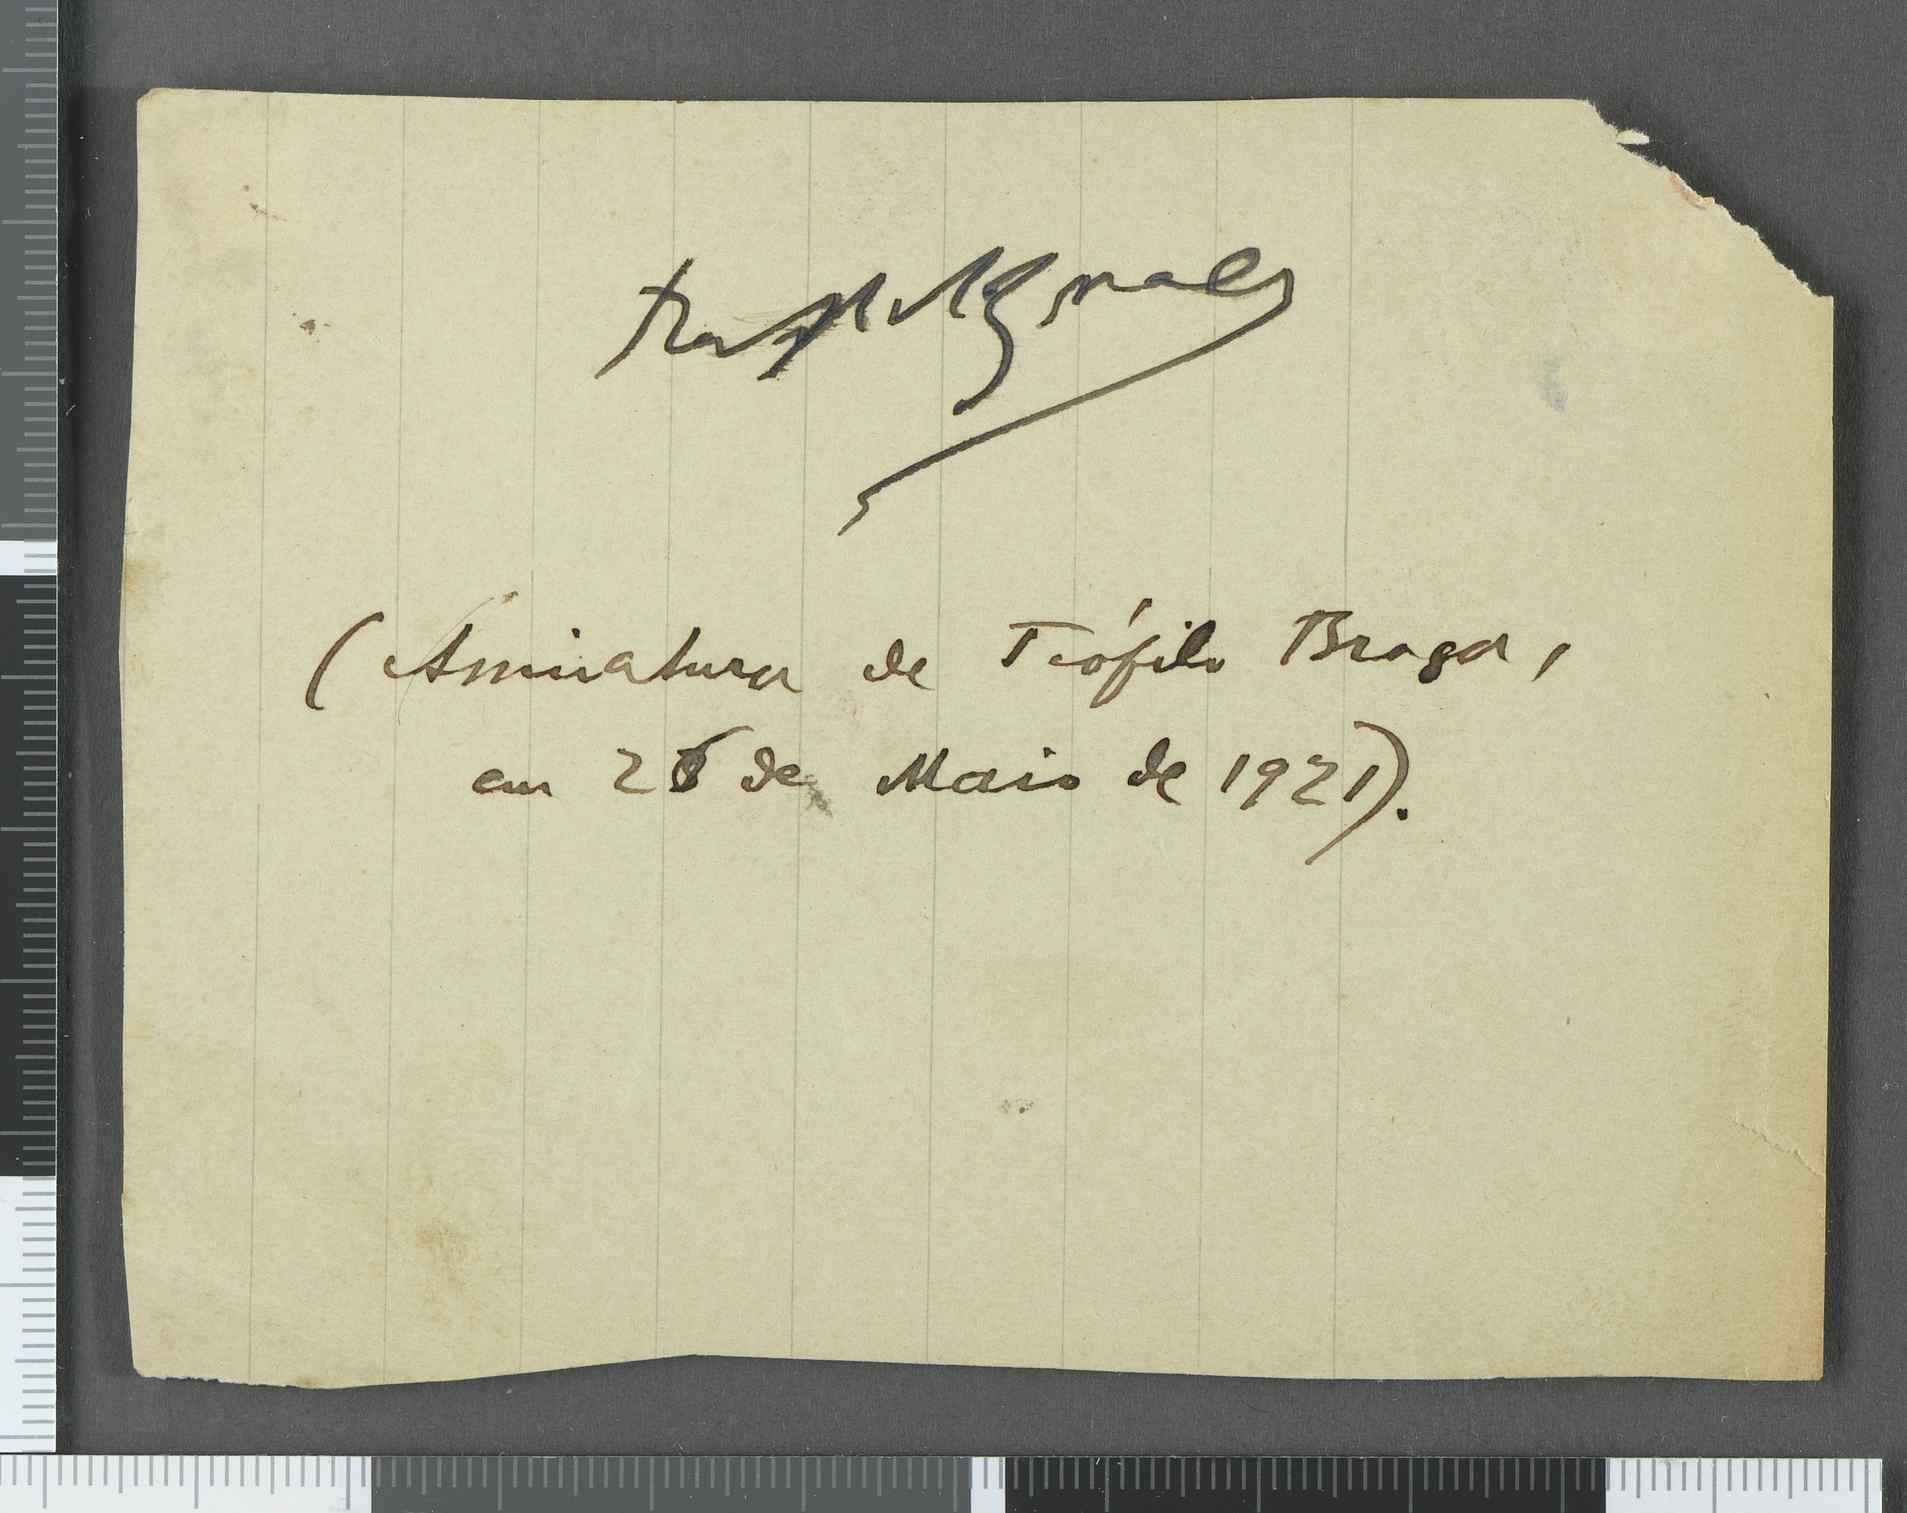 (Assinatura de Teófilo Braga,
em de Maio de 1921).